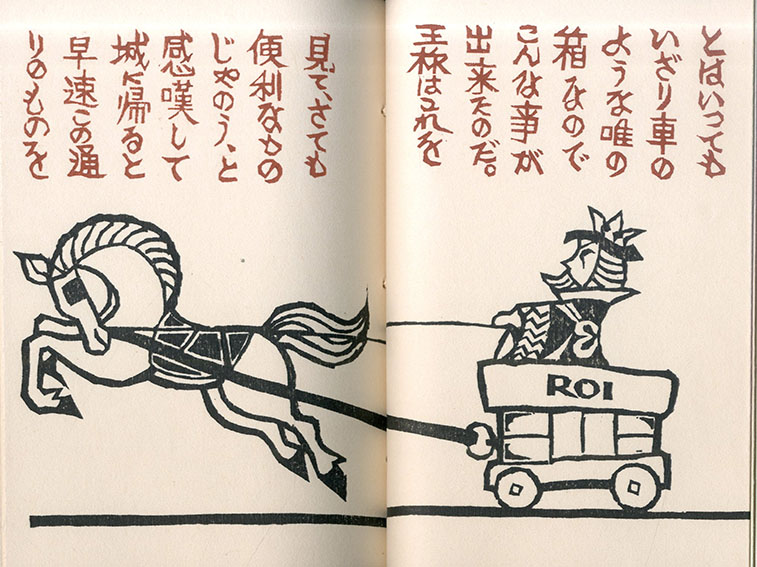 とはいっても
いざり車の
ような唯の
箱なので
こんな事が
出来たのだ。
王様はこれを
見て、さても
便利なもの
じゃのう、と
感嘆して
城に帰ると
早速この通
りのものを
ROI